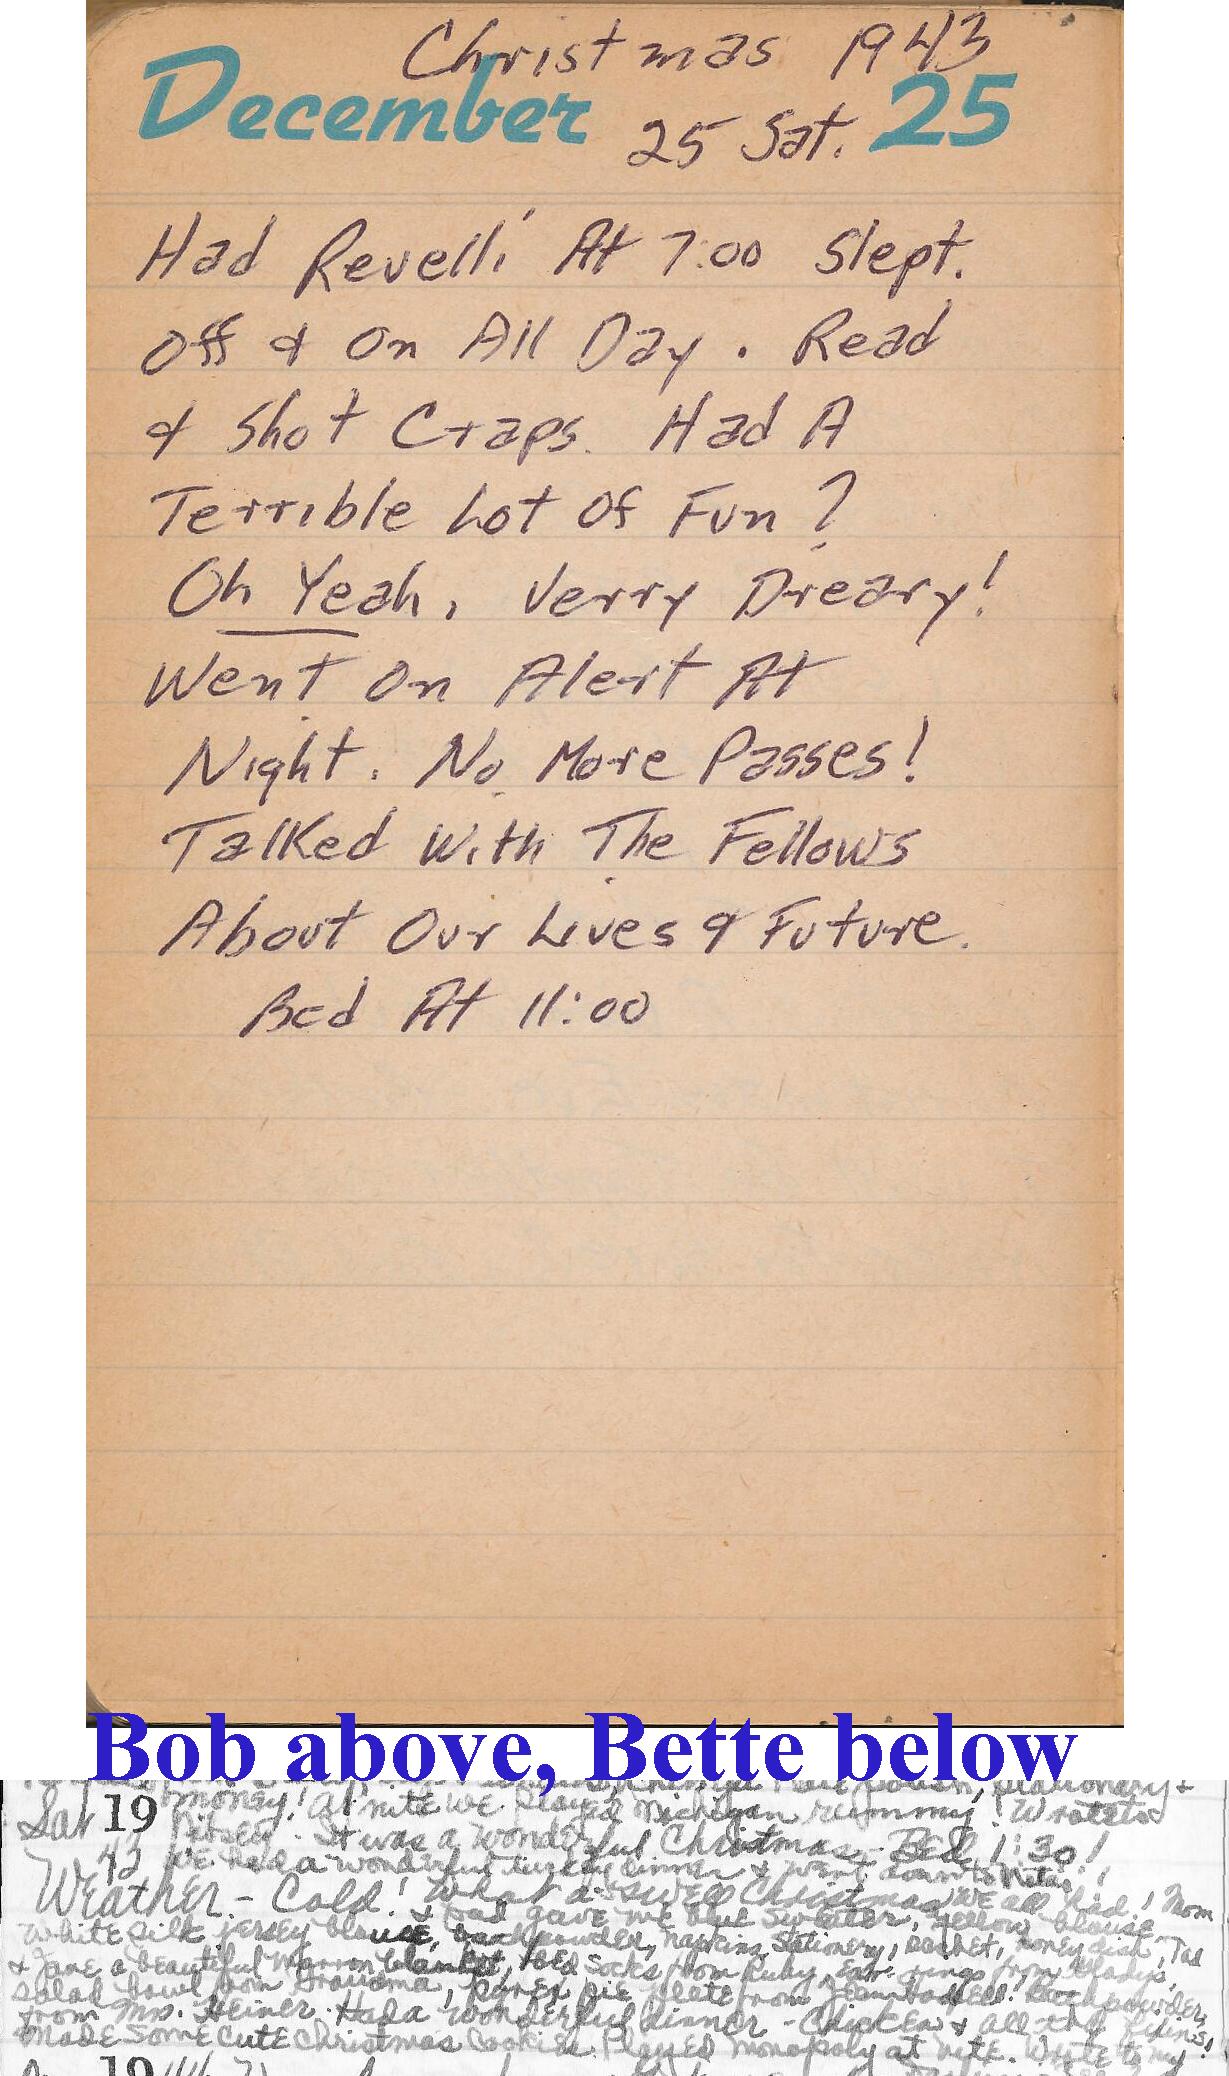 Christmas 1943
December 25 Sat. 25
Had Revelli At 7:00 Slept.
Off & On All Day. Read
& Shot Craps. Had A
Terrible Lot Of Fun?
Oh Yeah, Verry Dreary!
Went On Alert At
Night. No More Passes!
Talked With The Fellows
About Our Lives & Future.
Bed At 11:00
Bob above, Bette below
money! At nite we played Michigan rummy! Wrote to
Sat 19
It was a wonderful Christmas. Bed 1:30!
43 We had a wonderful turkey dinner & went down to
Weather - Cold! What a swell Christmas we all had! Mom
& Dad gave me blue sweater, yellow blouse,
white silk jersey blouse, powder, napkins, stationery, sachet, honey dish, Tad
& Jane a beautiful blanket, bed socks from Ruby, ear rings from Gladys,
salad bowl from Grandma, pyrex pie plate from
from Mrs. Heiner. Had a wonderful dinner - Chicken & all the fixins!
Made some cute Christmas cookies. Played monopoly at nite. Wrote to my
19